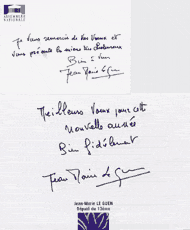 ASSEMBLÉE
NATIONALE
Je vous remercie de vos vœux et
vous présente les miens très chaleureux
Bien à vous
Jean Marie Le Guen
Meilleurs vœux pour cette
nouvelle année
Bien fidèlement
Jean Marie Le Guen
Jean-Marie LE GUEN
Député de Paris